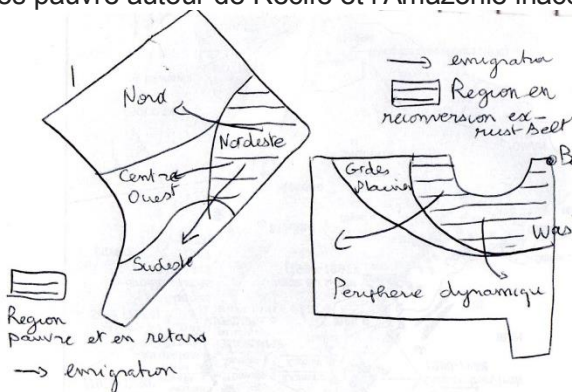 pauvre autour de Recife et l'Amazonie
Nord
Nordeste
Centre
Ouest
Sudeste
Region
pauvre et en retard
→ emigration
→ emigration
Region en
reconversion ex-
rust Belt
Gdes
Plaines
B
Was
Peripherie dynamique